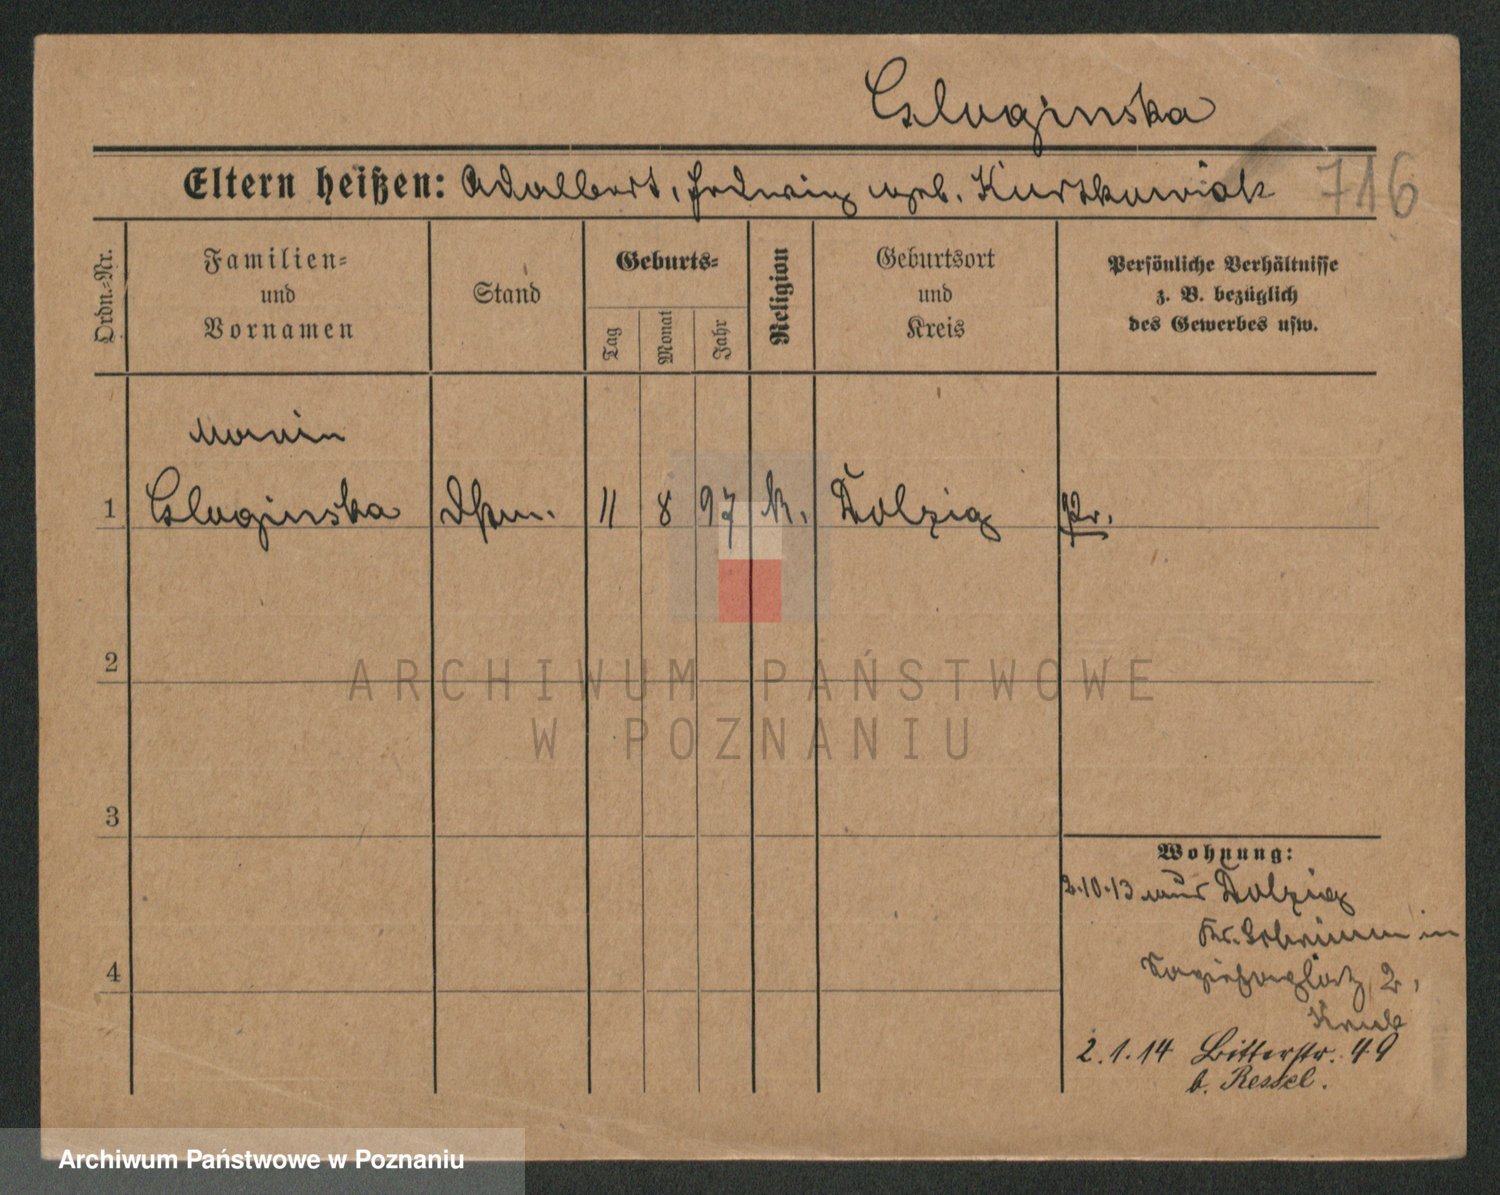 Czluginska
Eltern heißen: Adalbert, Hedwig geb. Kurzkawiak 716
Ordn.-Nr.
Familien-
und
Vornamen
Stand
Geburts-
Tag
Monat
Jahr
Religion
Geburtsort
und
Kreis
Persönliche Verhältnisse
z. B. bezüglich
des Gewerbes usw.
1
11 8 97 k. Dolzig Pr.
2
3
4
Wohnung:
2.10.13 aus Dolzig
Kr. Schrimm in
2,
2.1.14 Bitterstr. 49
b. Ressel.
ARCHIWUM PAŃSTWOWE
W POZNANIU
Archiwum Państwowe w Poznaniu